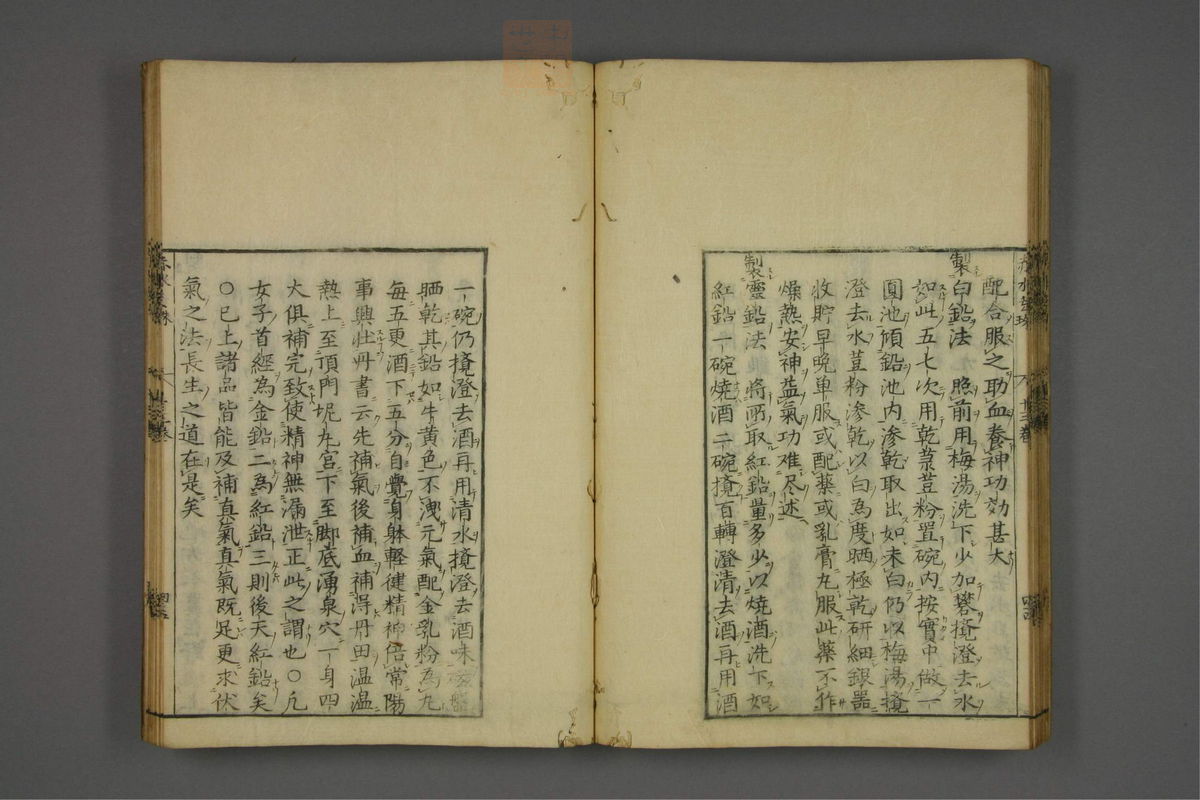 配合服之助血養神功効甚大
製白鉛法 照前用梅湯洗下少加礬攪澄去水
如此五七次用乾菉荳粉置碗内按實中做一
圓池傾鉛池内滲乾取出如未白仍以梅湯攪
澄去水荳粉滲乾以白為度晒極乾研細銀器
收貯早晚単服或配薬或乳膏丸服此薬不作
燥熱安神益氣功难尽述
製靈鉛法 將所取紅鉛量多少以燒酒洗下如
紅鉛一碗燒酒二碗攪百轉澄清去酒再用酒
一碗仍攪澄去酒再用清水攪澄去酒味
晒乾其鉛如牛黄色不洩元氣配金乳粉為丸
每五更酒下五分自覺身躰軽健精神倍常陽
事興壮丹書云先補氣後補血補得丹田温温
熱上至頂門坭丸宮下至脚底湧泉穴一身四
大俱補完致使精神無漏泄正此之謂也○凡
女子首經為金鉛二為紅鉛三則後天紅鉛矣
○已上諸品皆能及補真氣真氣既足更求伏
氣之法長生之道在是矣